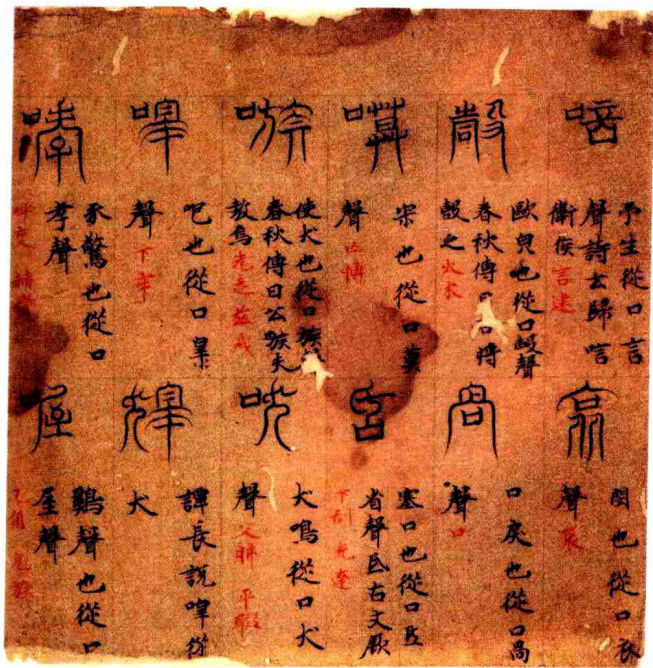 唁
弔生從口言
聲詩云歸唁
衛侯 言建
嗀
歐皃也從口㱿聲
春秋傳曰君將
嗀之 火木
嗼
宋也從口莫
聲 亡博
嗾
使犬也從口族聲
春秋傳曰公嗾夫
敖 先走
嘷
咆也從口皋
聲 下牢
哮
豕驚也從口
孝聲
呼交
哀
閔也從口衣
聲
咼
口戾也從口冎
聲 口
𠯑
塞口也從口氐
省聲𠯑古文厥
下刮
吠
犬鳴從口犬
聲 父肺
獆
譚長説嘷從
犬
喔
鷄聲也從口
屋聲
乙角